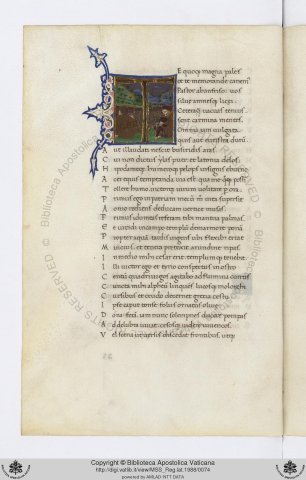 TE quoq; magna pales
et te memorande canem9
Pastor
silue amnesq; licei.
Cetera q uacuas tenuis
sent carmina mentes.
Omnia iam uulgata
quis aut euristea durū
A ut illaudati nescit busiridis aras
C ui non dictus ylas puer et latonia delos
H ippodameq; humeroq; pelops insignis eburno
A cer equis temptanda uia est qua me quoq; possi
T ollere humo uictorq; uirum uolitare p ora
P rimus ego in patriam mecū modo uita supersit
A onio rediens deducam uertice musas
P rimus idumeas referam tibi mantua palmas
E t uiridi in campo templū de marmore ponā
P ropter aquā tardis ingens ubi flexibus errat
M incius et tenera pretexit arundine ripas
I n medio mihi cesar erit templūq; tenebit
I lli uictor ego et tyrio conspectus in ostro
C entū quadriiugos agitabo ad flumina currus
C uncta mihi alpheum linquens lucosq; molorchi
C ursibus et crudo decernet grecia cestu
I pse caput tonse foliis ornatus oliue
D ona ferā iam nunc solemnes ducere pompas
A d delubra iuuat cesosq; uidere iuuencos
V el scena ut uersis discedat frontibus utq;
© Biblioteca Apostolica Vaticana
Copyright © Biblioteca Apostolica Vaticana
http://digi.vatlib.it/view/MSS_Reg.lat.1988/0074
powered by AMLAD NTT DATA